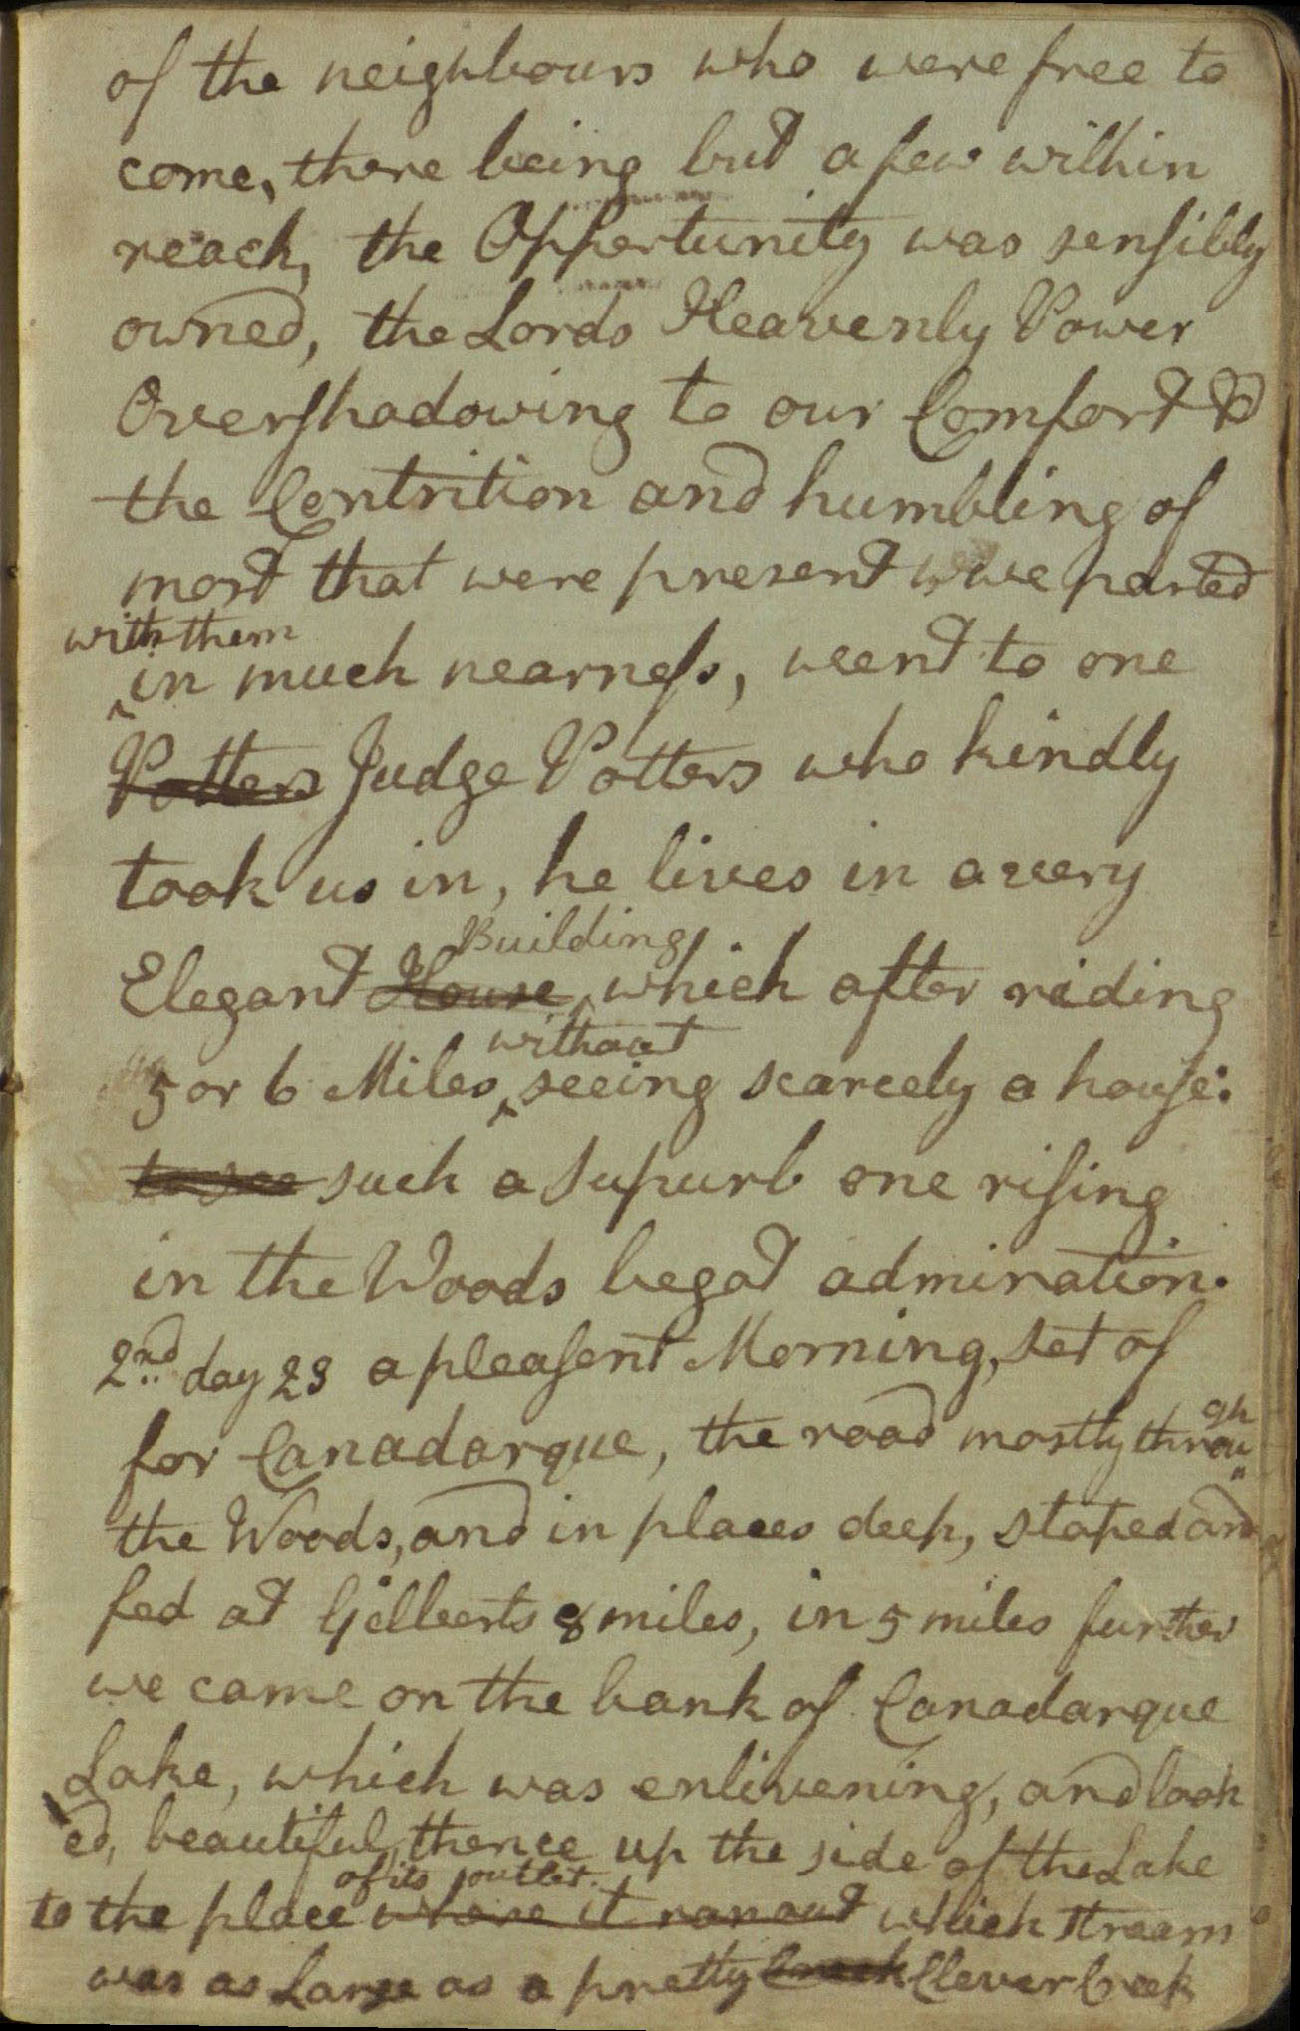 of the neighbours who were free to
come, there being but a few within
reach, the Oppertunity was sensibly
owned, the Lords Heavenly Power
Overshadowing to our Comfort &
the Contrition and humbling of
most that were present we parted
with them
in much nearness, went to one
Potters Judge Potters who kindly
took us in, he lives in a very
Building
Elegant House which after riding
without
5 or 6 Miles seeing scarcely a house:
to see such a Supurb one rising
in the Woods begat admiration.
2nd day 23 a pleasent Morning, set of
for Canadarque, the road mostly throu
gh
the Woods, and in places deep, stoped and
fed at Gilberts 8 miles, in 5 miles further
we came on the bank of Canadarque
Lake, which was enlivening, and look
ed, beautiful, thence up the side of the Lake
of its outlet.
to the place where it ran out which stream
was as Large as a pretty creek Clever Creek